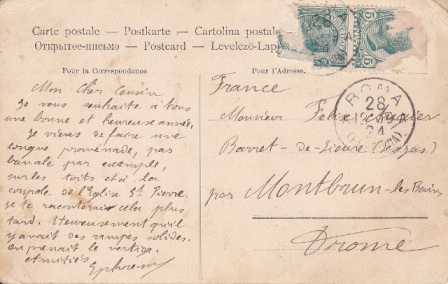 Carte postale – Postkarte – Cartolina postale
Открытое письмо – Postcard – Levelező-Lap
Pour la Correspondance
Pour l'Adresse.
Mon Cher Cousin
Je vous souhaite à tous
une bonne et heureuse année.
Je viens de faire une
longue promenade, pas
banale par exemple,
sur les toits et à la
coupole de l'Eglise St Pierre.
je te raconterai cela plus
tard. Heureusement qu'il
y avait des rampes solides.
on prenait le vertige.
Amitiés
France
Monsieur Felix
Barret-de-Lioure
par Montbrun-les-Bains
Drome
ROMA
28
12
24
5
5